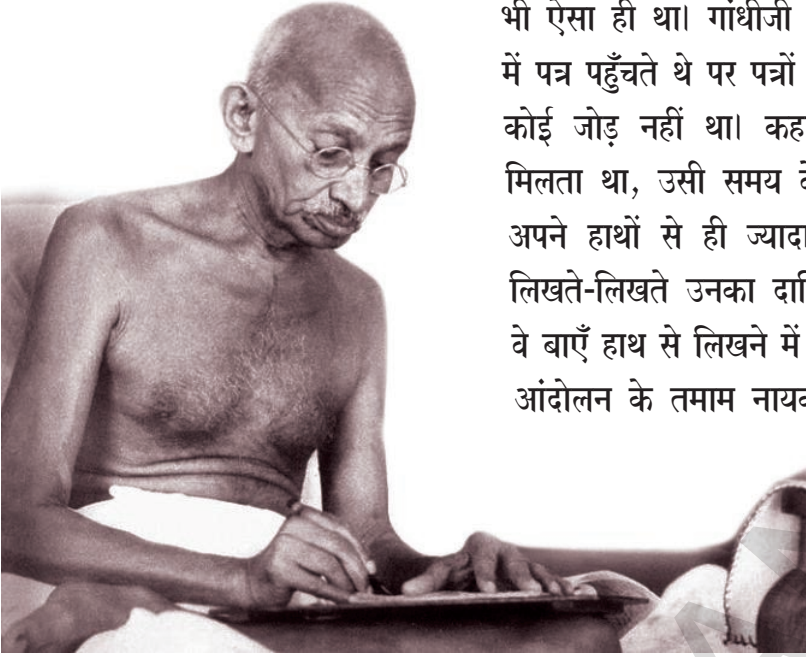 भी ऐसा ही था। गांधीजी
में पत्र पहुँचते थे पर पत्रों
कोई जोड़ नहीं था। कह
मिलता था, उसी समय
अपने हाथों से ही
लिखते-लिखते उनका
वे बाएँ हाथ से लिखने में
आंदोलन के तमाम